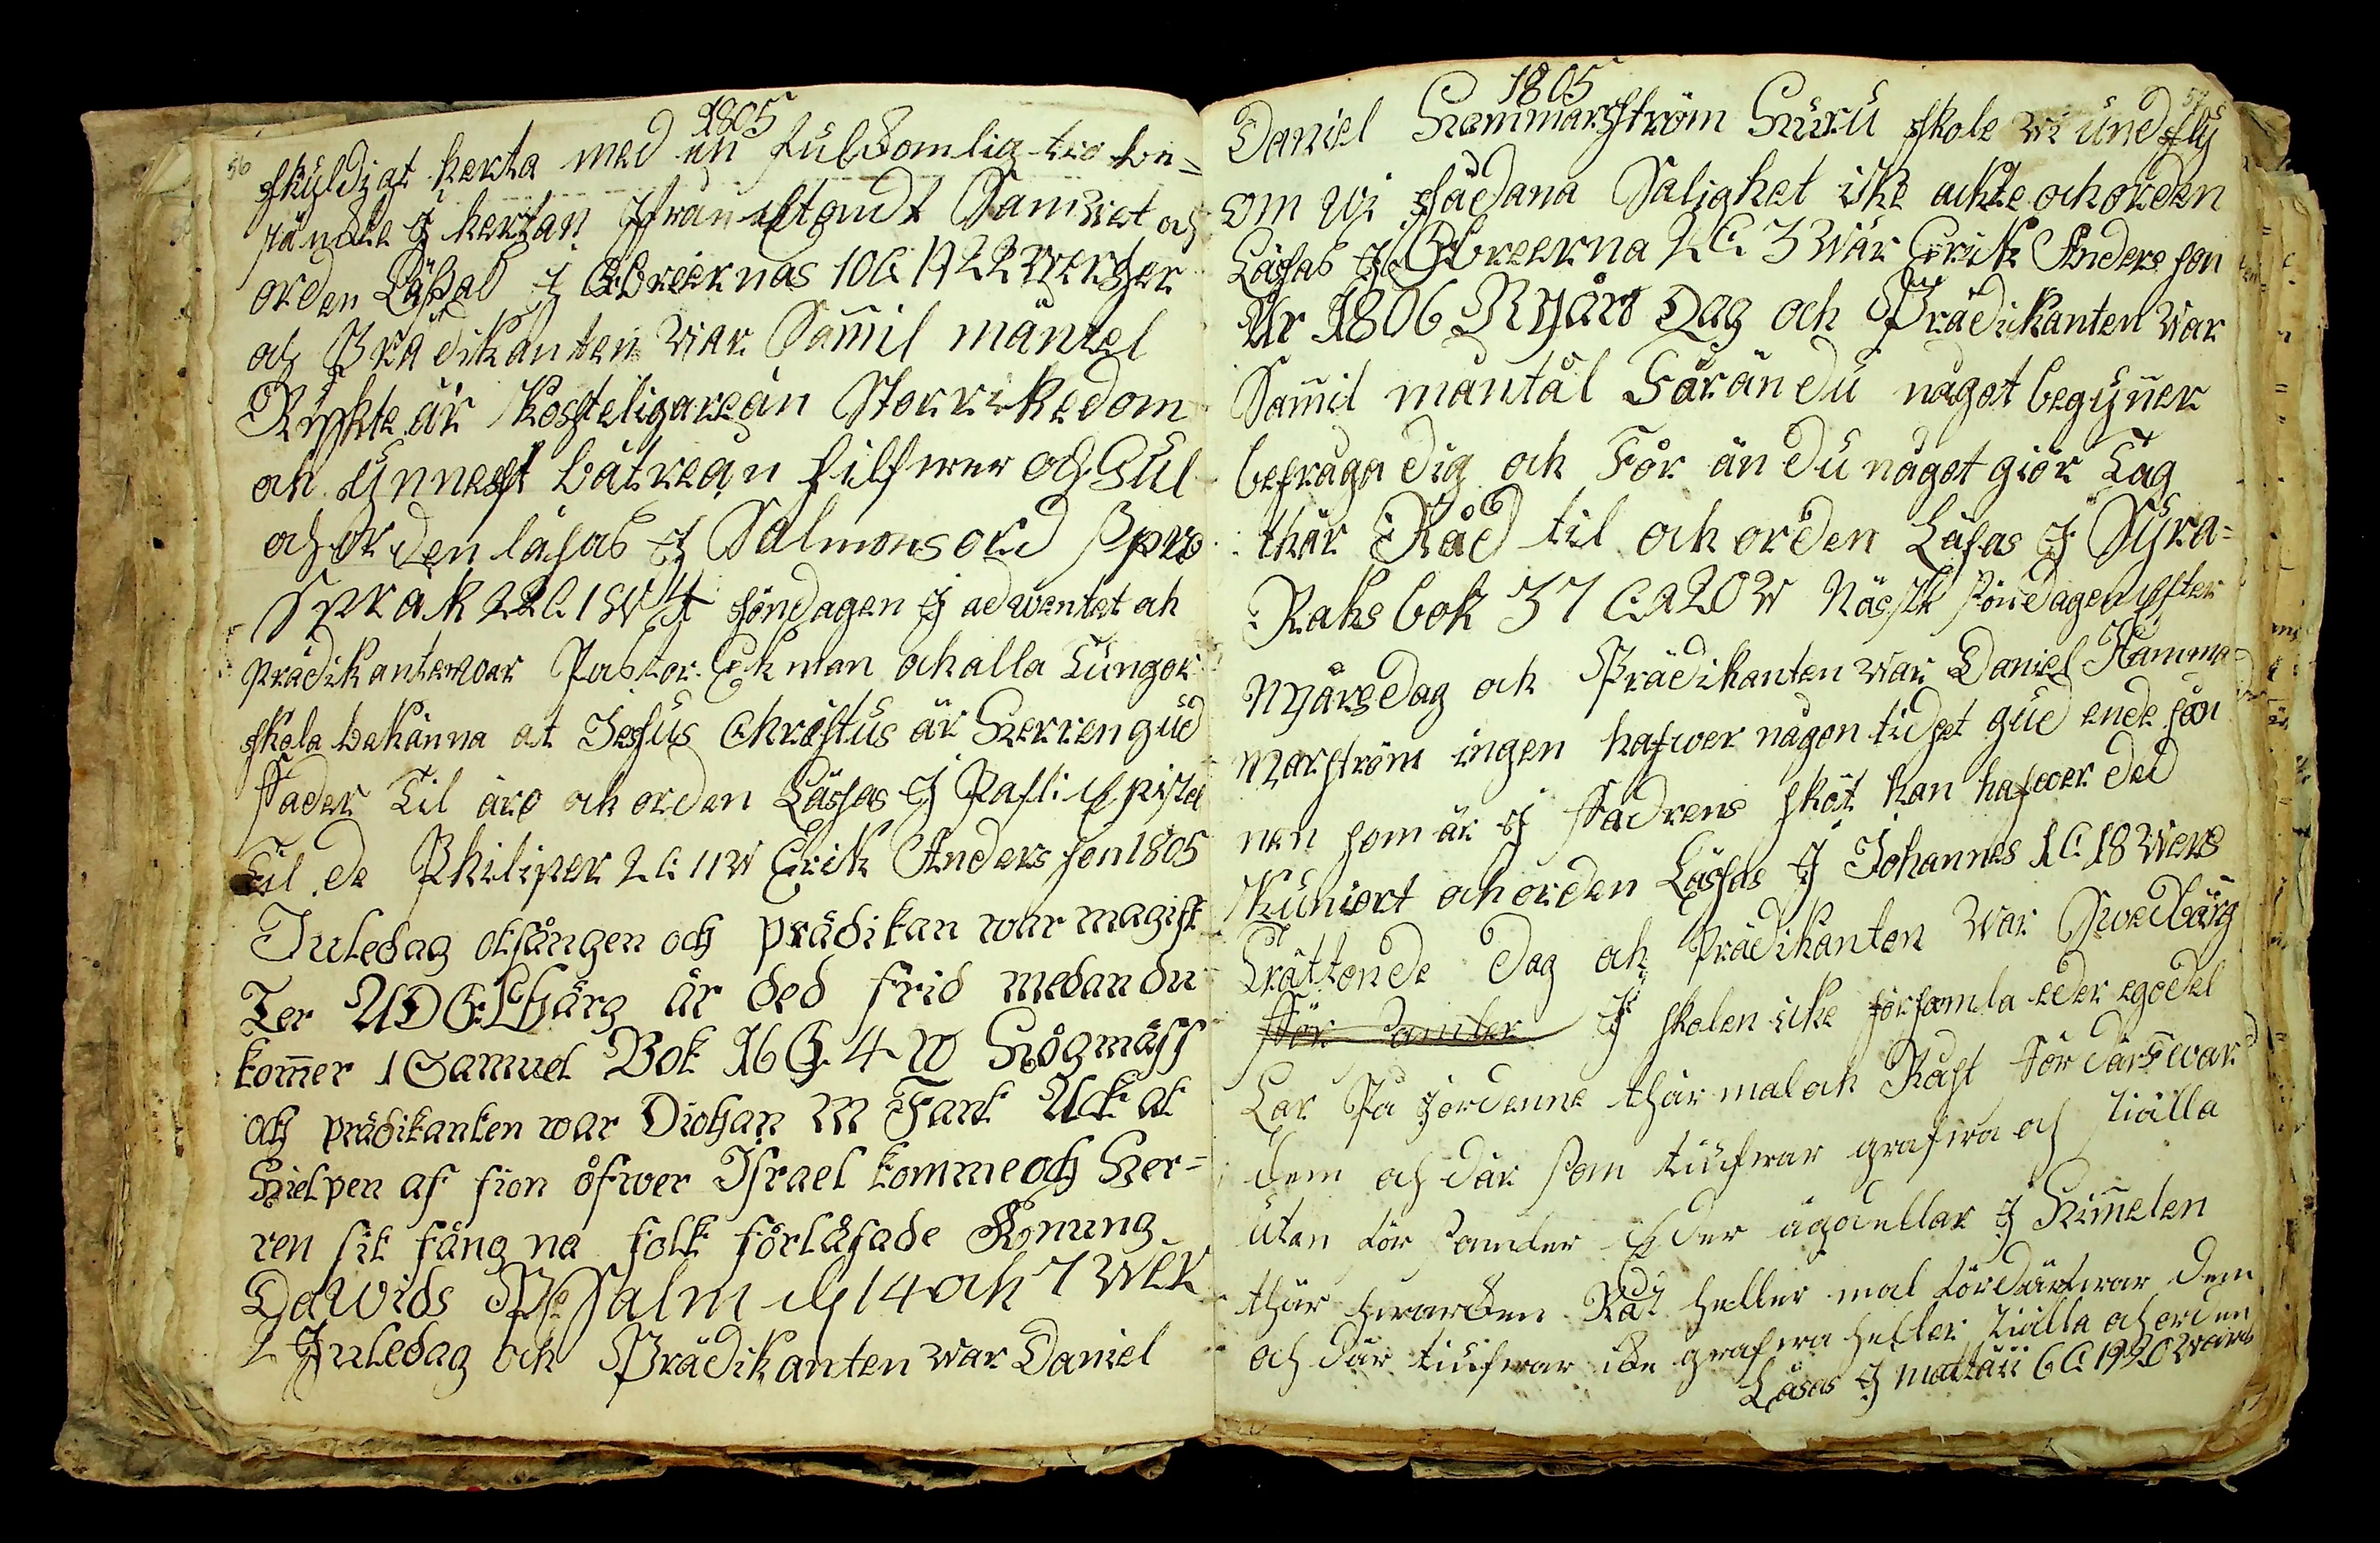 1805
56
skuldigt herta med en fulkomlig tro be=
stänckte J hertan ifrån ett ondt Samwet och
orden Läsas J Ebreernas 10 C 19 22 werser
och Prädikanten war Samil mäntel
Rychte är kosteligare än Stor rikedom
och ynnest bätre än silfwer och Gul
och orden läsas J Salmons ord
Språk 22 C 1 W 4 söndagen J adwentet och
prädikanten war Pastor Ekman och alla Tungor
skola bekänna at Jesus Christus är Herren gud
Fader Til äro och orden Läsas J Pafli Epistel
Til de Philiper 2 C 11 W Erik Anders son 1805
Juledag otsången och prädikan war magist
Ter UDGLbärg är ded frid medan du
kom̄er 1 Samuel Bok 16 C 4 W Högmäss
och prädikanten war Diokan M Fant Ack at
Hielpen af sion öfwer Israel komme och Her=
ren sit fång na folk förlåsade Konung
Dawids Psalm 14 och 7 wer
2 Juledag och Prädikanten war Daniel
1805
57
Daniel Hammarström Huru skole wi undfly
om wi sådana Salighet icke ackte och orden
Läsas J Ebreerna 2 C 3 war Erik Anders son
År 1806 Nyårs Dag och Prädikanten war
Sam̄il mäntäl Får än du något begyn̄er
befråga dig och Får än du något giör Tag
thär Råd til och orden Läsas J Syra=
Raks bok 37 C 20 W Näste söndagen efter
Nyårsdag och Prädikanten war Daniel Hamma=
marström ingen hafwer någon tid set gud ende son
nen som är J Fadrens sköt han hafwer ded
kuniort och orden Läsas J Johannes 1 C 18 wers
Trättonde Dag och Prädikanten war Swedbärg
För samler J skolen icke församla eder egodel
Lar På jordenne thär mal och Råst fördärfwar
dem och där som tiufwar grafwa och stiälla
utan för samler Eder ägodellar J Him̄elen
thär hwarken Råst heller mal fördärfwar dem
och där tiufwar icke grafwa heller stiälla och orden
Läsas J mattäii 6 C 19 20 wärs